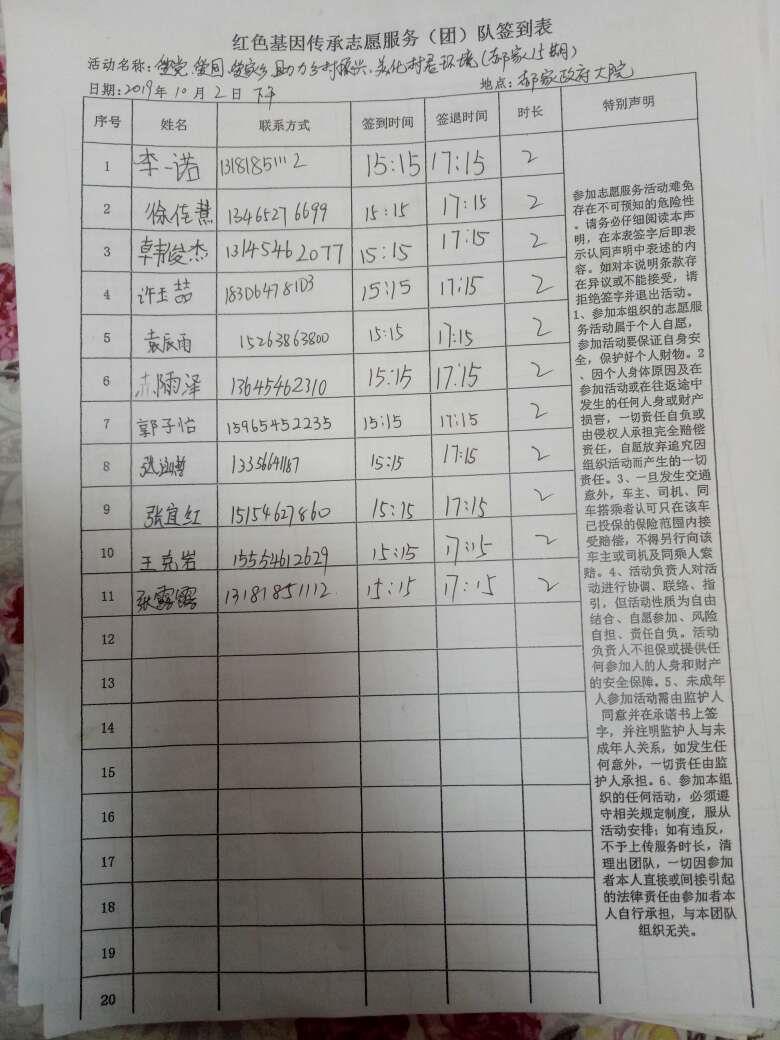 红色基因传承志愿服务（团）队签到表
活动名称：爱党.爱国.爱家乡 助力乡村振兴.美化村居环境(郝家15期)
日期：2019年10月2日 下午 地点：郝家政府大院
序号 姓名 联系方式 签到时间 签退时间 时长 特别声明
1 李一诺 13181851112 15:15 17:15 2
2 徐佳慧 13465276699 15:15 17:15 2
3 韩俊杰 13145462077 15:15 17:15 2
4 许玉喆 18306478103 15:15 17:15 2
5 袁辰雨 15263863800 15:15 17:15 2
6 雨泽 13645462310 15:15 17:15 2
7 郭子怡 15965452235 15:15 17:15 2
8 张 13356641187 15:15 17:15 2
9 张宜红 15154627860 15:15 17:15 2
10 王克岩 15554612629 15:15 17:15 2
11 张露露 13181851112 15:15 17:15 2
12
13
14
15
16
17
18
19
20
参加志愿服务活动难免
存在不可预知的危险性
。请务必仔细阅读本声
明，在本表签字后即表
示认同声明中表述的内
容。如对本说明条款存
在异议或不能接受，请
拒绝签字并退出活动。
1、参加本组织的志愿服
务活动属于个人自愿，
参加活动要保证自身安
全，保护好个人财物。2
、因个人身体原因及在
参加活动或在往返途中
发生的任何人身或财产
损害，一切责任自负或
由侵权人承担完全赔偿
责任，自愿放弃追究因
组织活动而产生的一切
责任。3、一旦发生交通
意外，车主、司机、同
车搭乘者认可只在该车
已投保的保险范围内接
受赔偿，不得另行向该
车主或司机及同乘人索
赔。4、活动负责人对活
动进行协调、联络、指
引，但活动性质为自由
结合、自愿参加、风险
自担、责任自负。活动
负责人不担保或提供任
何参加人的人身和财产
的安全保障。5、未成年
人参加活动需由监护人
同意并在承诺书上签
字，并注明监护人与未
成年人关系，如发生任
何意外，一切责任由监
护人承担。6、参加本组
织的任何活动，必须遵
守相关规定制度，服从
活动安排；如有违反，
不于上传服务时长，清
理出团队，一切因参加
者本人直接或间接引起
的法律责任由参加者本
人自行承担，与本团队
组织无关。